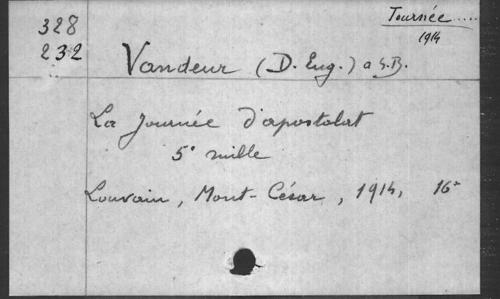 Tournée.....
1914
328
232
Vandeur (D. Eug.) O.S.B.
La Journée d'apostolat
5e mille
Louvain, Mont-César, 1914, 16°